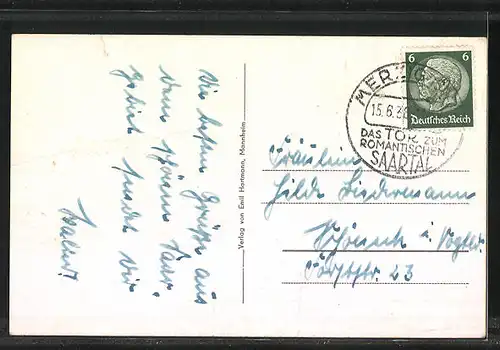 Die besten Grüße aus
dem schönen Saar-
gebiet sendet Dir
Verlag von Emil Hartmann, Mannheim
MERZIG
15.6.3
DAS TOR ZUM
ROMANTISCHEN
SAARTAL
6 6
Deutsches Reich
Fräulein
Hilde Biedermann
Schöneck i. Vogtl.
23